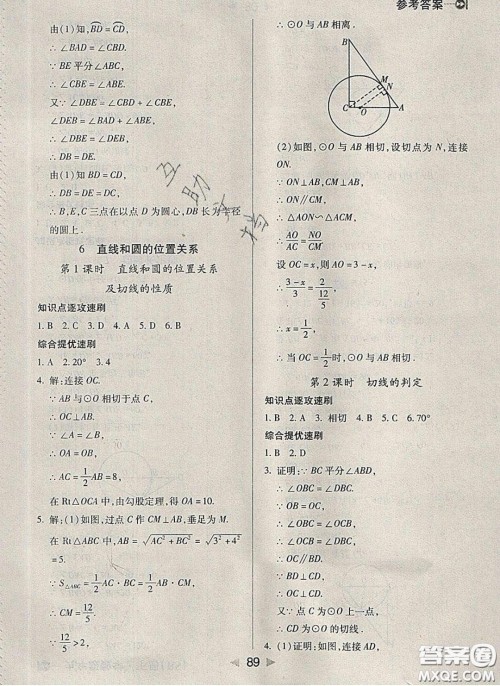 参考答案
由(1)知,BD=CD,
∴ ∠BAD=∠CBD.
又∵ BE平分∠ABC,
∴ ∠CBE=∠ABE.
∵ ∠DBE=∠CBD+∠CBE,
∠DEB=∠BAD+∠ABE,
∴ ∠DBE=∠DEB.
∴ DB=DE.
由(1)知BD=CD,
∴ DB=DE=DC.
∴ B,E,C三点在以点D为圆心,DB长为半径
的圆上.
6 直线和圆的位置关系
第1课时 直线和圆的位置关系
及切线的性质
知识点逐攻速刷
1. B 2. C 3. D 4. A 5. D 6. B
综合提优速刷
1. A 2. 20° 3. 4
4. 解:连接OC.
∵ AB与⊙O相切于点C,
∴ OC⊥AB.
∵ OA=OB,
∴ AC=1/2AB=8,
在Rt△OCA中,由勾股定理,得
5. 解:(1)如图,过点C作CM⊥AB,垂足为M.
在Rt△ABC中,AB=√(AC²+BC²)=√(3²+4²)
=5.
∵ S△ABC=1/2AC·BC=1/2AB·CM,
∴ CM=12/5.
∵ 12/5>2,
∴ ⊙O与AB相离.
B
M
N
C
O
A
(2)如图,⊙O与AB相切,设切点为N,连接
ON,
∵ ON⊥AB,CM⊥AB,
∴ ON∥CM.
∴ △AON∽△ACM,
∴ AO/AC=ON/CM.
设OC=x,则AO=3-x,
∴ (3-x)/3=2/(12/5).
∴ x=1/2,
∴ 当OC=1/2时,⊙O与AB相切.
第2课时 切线的判定
知识点逐攻速刷
1. B 2. A 3. 相切 4. B 5. C 6. 70°
综合提优速刷
1. B 2. D
3. 证明:∵ BC平分∠ABD,
∴ ∠OBC=∠DBC.
∵ OB=OC,
∴ ∠OBC=∠OCB.
∴ ∠DBC=∠OCB.
∴ OC∥BD.
∵ BD⊥CD,
∴ OC⊥CD.
又∵ 点C为⊙O上一点,
∴ CD为⊙O的切线.
4. (1)证明:如图,连接AD,
89
作业帮手
MXQE.COM